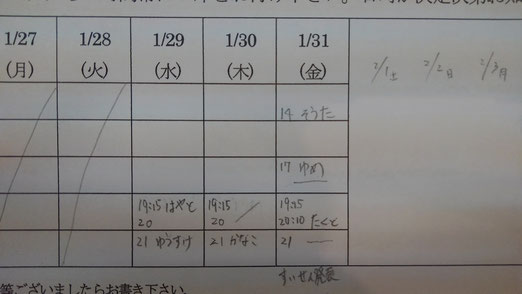 1/27 1/28 1/29 1/30 1/31
(月) (火) (水) (木) (金) 2/1土 2/2日 2/3月
14 そうた
17 ゆめ
19:15 はやと 19:15 19:15
20 20 20:10 たくと
21 ゆうすけ 21 かなこ 21
すいせん発表
等ございましたらお書き下さい。